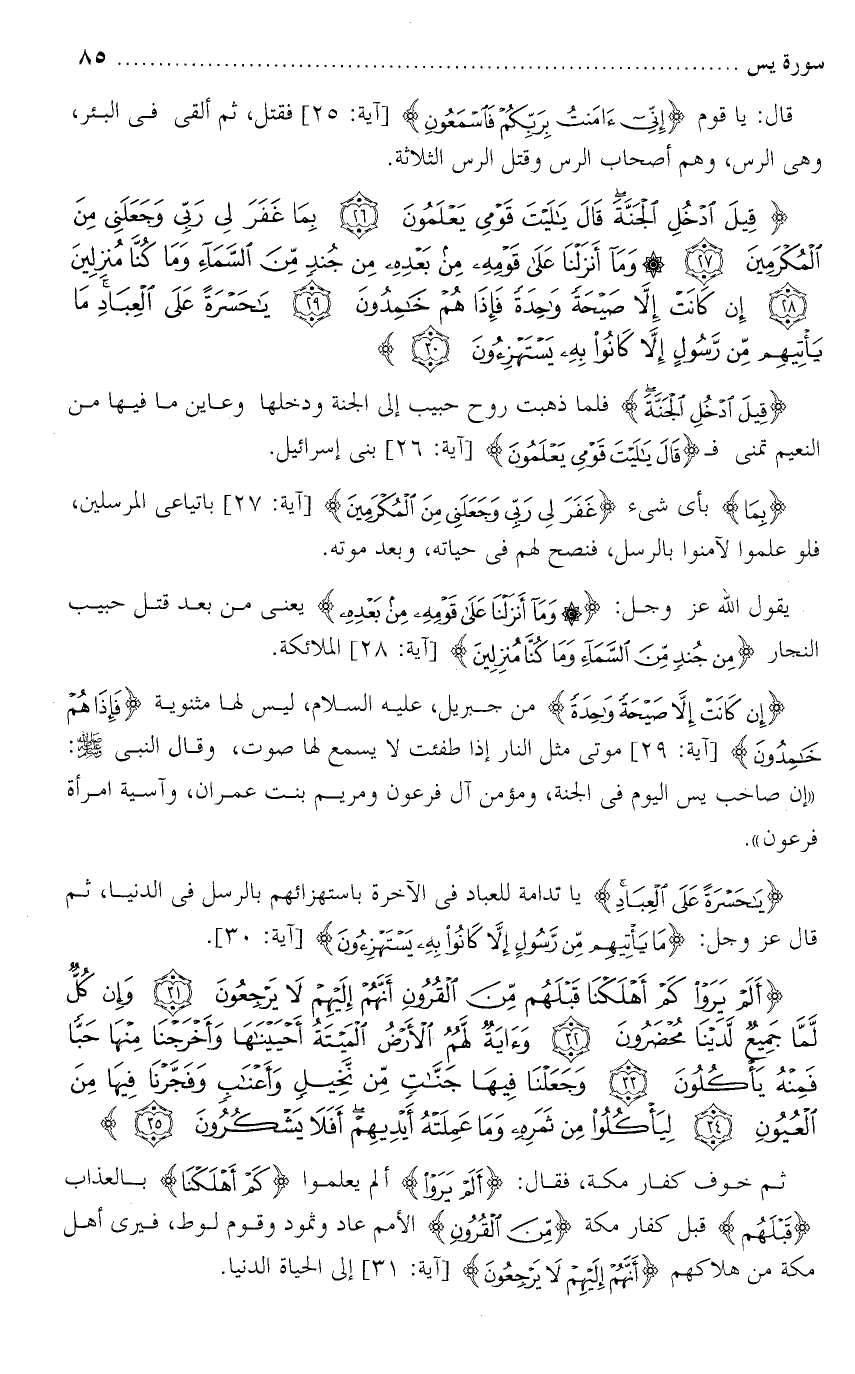 سورة يس ........................................................................ ٨٥
قال: يا قوم ﴿إِنِّىٓ ءَامَنتُ بِرَبِّكُمْ فَٱسْمَعُونِ﴾ [آية: ٢٥] فقتل، ثم ألقى فى البئر،
وهى الرس، وهم أصحاب الرس وقتل الرس الثلاثة.
﴿قِيلَ ٱدْخُلِ ٱلْجَنَّةَ ۖ قَالَ يَٰلَيْتَ قَوْمِى يَعْلَمُونَ ٢٦ بِمَا غَفَرَ لِى رَبِّى وَجَعَلَنِى مِنَ
ٱلْمُكْرَمِينَ ٢٧ ۞ وَمَآ أَنزَلْنَا عَلَىٰ قَوْمِهِۦ مِنۢ بَعْدِهِۦ مِن جُندٍ مِّنَ ٱلسَّمَآءِ وَمَا كُنَّا مُنزِلِينَ
٢٨ إِن كَانَتْ إِلَّا صَيْحَةً وَٰحِدَةً فَإِذَا هُمْ خَٰمِدُونَ ٢٩ يَٰحَسْرَةً عَلَى ٱلْعِبَادِ ۚ مَا
يَأْتِيهِم مِّن رَّسُولٍ إِلَّا كَانُوا۟ بِهِۦ يَسْتَهْزِءُونَ ٣٠﴾
﴿قِيلَ ٱدْخُلِ ٱلْجَنَّةَ ۖ﴾ فلما ذهبت روح حبيب إلى الجنة ودخلها وعاين ما فيها من
النعيم تمنى فـ ﴿قَالَ يَٰلَيْتَ قَوْمِى يَعْلَمُونَ﴾ [آية: ٢٦] بنى إسرائيل.
﴿بِمَا﴾ بأى شىء ﴿غَفَرَ لِى رَبِّى وَجَعَلَنِى مِنَ ٱلْمُكْرَمِينَ﴾ [آية: ٢٧] باتياعى المرسلين،
فلو علموا لآمنوا بالرسل، فنصح لهم فى حياته، وبعد موته.
يقول الله عز وجل: ﴿۞ وَمَآ أَنزَلْنَا عَلَىٰ قَوْمِهِۦ مِنۢ بَعْدِهِۦ﴾ يعنى من بعد قتل حبيب
النجار ﴿مِن جُندٍ مِّنَ ٱلسَّمَآءِ وَمَا كُنَّا مُنزِلِينَ﴾ [آية: ٢٨] الملائكة.
﴿إِن كَانَتْ إِلَّا صَيْحَةً وَٰحِدَةً﴾ من جبريل، عليه السلام، ليس لها مثنوية ﴿فَإِذَا هُمْ
خَٰمِدُونَ﴾ [آية: ٢٩] موتى مثل النار إذا طفئت لا يسمع لها صوت، وقال النبى ﷺ:
«إن صاحب يس اليوم فى الجنة، ومؤمن آل فرعون ومريم بنت عمران، وآسية امرأة
فرعون».
﴿يَٰحَسْرَةً عَلَى ٱلْعِبَادِ ۚ﴾ يا تدامة للعباد فى الآخرة باستهزائهم بالرسل فى الدنيا، ثم
قال عز وجل: ﴿مَا يَأْتِيهِم مِّن رَّسُولٍ إِلَّا كَانُوا۟ بِهِۦ يَسْتَهْزِءُونَ﴾ [آية: ٣٠].
﴿أَلَمْ يَرَوْا۟ كَمْ أَهْلَكْنَا قَبْلَهُم مِّنَ ٱلْقُرُونِ أَنَّهُمْ إِلَيْهِمْ لَا يَرْجِعُونَ ٣١ وَإِن كُلٌّ
لَّمَّا جَمِيعٌ لَّدَيْنَا مُحْضَرُونَ ٣٢ وَءَايَةٌ لَّهُمُ ٱلْأَرْضُ ٱلْمَيْتَةُ أَحْيَيْنَٰهَا وَأَخْرَجْنَا مِنْهَا حَبًّا
فَمِنْهُ يَأْكُلُونَ ٣٣ وَجَعَلْنَا فِيهَا جَنَّٰتٍ مِّن نَّخِيلٍ وَأَعْنَٰبٍ وَفَجَّرْنَا فِيهَا مِنَ
ٱلْعُيُونِ ٣٤ لِيَأْكُلُوا۟ مِن ثَمَرِهِۦ وَمَا عَمِلَتْهُ أَيْدِيهِمْ ۖ أَفَلَا يَشْكُرُونَ ٣٥﴾
ثم خوف كفار مكة، فقال: ﴿أَلَمْ يَرَوْا۟﴾ ألم يعلموا ﴿كَمْ أَهْلَكْنَا﴾ بالعذاب
﴿قَبْلَهُم﴾ قبل كفار مكة ﴿مِّنَ ٱلْقُرُونِ﴾ الأمم عاد وثمود وقوم لوط، فيرى أهل
مكة من هلاكهم ﴿أَنَّهُمْ إِلَيْهِمْ لَا يَرْجِعُونَ﴾ [آية: ٣١] إلى الحياة الدنيا.